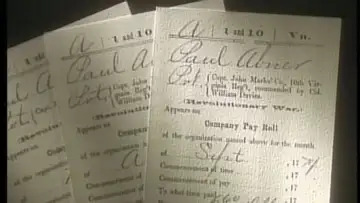 A | 1 and 10 | Va.
Paul Abner
Pvt. { Capt. John Marks' Co., 10th Vir-
ginia Reg't, commanded by Col.
William Davies.
(Revolutionary War.)
Appears on
Company Pay Roll
of the organization named above for the month
of Sept, 17
Commencement of time, 17
Commencement of pay, 17
To what time paid
A | 1 and 10
Paul Abner
Pvt. { Capt.
ginia
William
(Revolu
Appears on
Comp
of the organization
of A
Commencement of
Commencement of
To what time
A
Paul
Pvt
(
Appears on
of the org
of
Commen
Commen